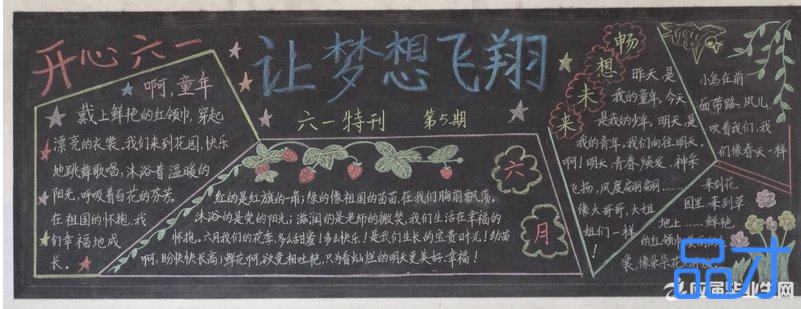 开心六一
让梦想飞翔
六一特刊 第5期
啊,童年
戴上鲜艳的红领巾,穿起
漂亮的衣裳。我们来到花园,快乐
地跳舞歌唱,沐浴着温暖的
阳光,呼吸着百花的芬芳。
在祖国的怀抱,我
们幸福地成
长。
六
月
红的是红旗的一角;绿的像祖国的苗苗,在我们胸前飘荡。
沐浴的是党的阳光;滋润的是老师的微笑,我们生活在幸福的
怀抱。六月我们的花季,多么甜蜜!多么快乐!是我们生长的宝贵时光!幼苗
啊,盼快快长高;鲜花啊,欲竞相吐艳,只为着灿烂的明天更美好、幸福!
畅
想
未
来
昨天,是
我的童年,今天
是我的少年,明天,是
我的青年,我们向往明天。
啊!明天,青春焕发,神采
飞扬,风度翩翩……
像大哥哥,大姐
姐们一样
!
小鸟在前
面带路,风儿
吹着我们,我
们像春天一样
来到花
园里,来到草
地上……鲜艳
的红领巾
裳,像朵朵花儿
品才
应届毕业生网